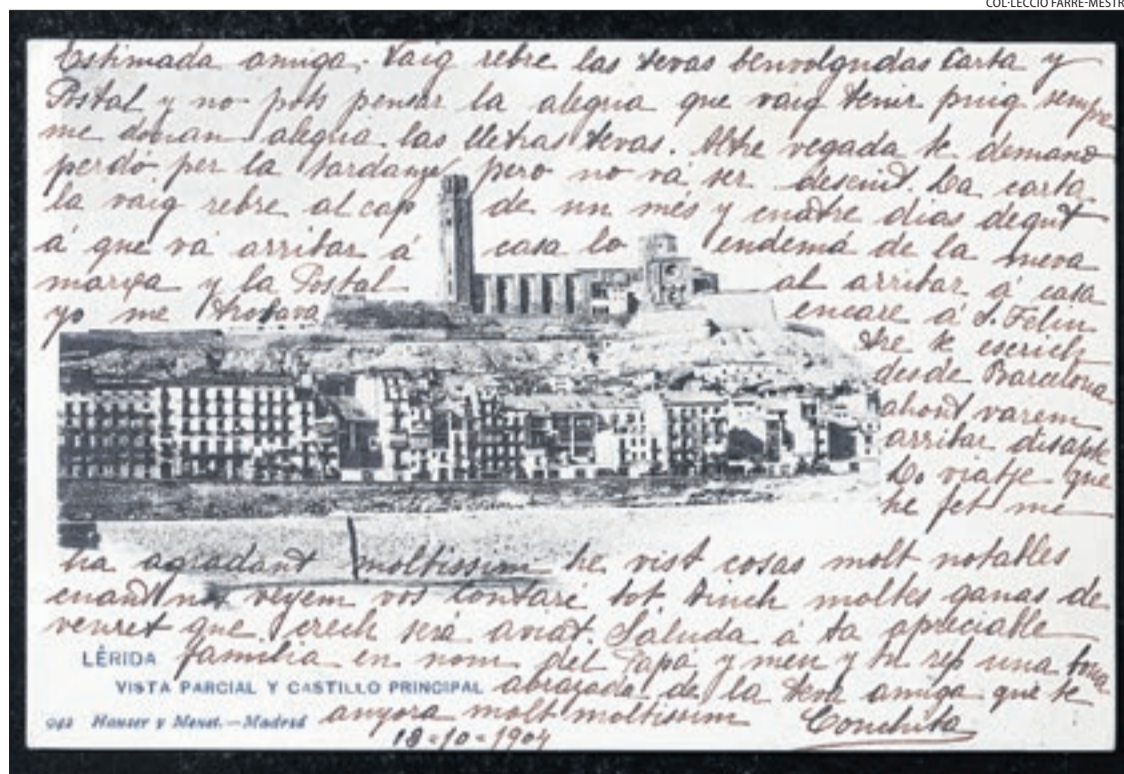 COL·LECCIÓ FARRÉ-MESTR
Estimada amiga. Vaig rebre las tevas benvolgudas Carta y
Postal y no pots pensar la alegria que vaig tenir puig sempre
me donan alegria las lletras tevas. Altre vegada te demano
perdó per la tardança pero no vá ser descuit. La carta
la vaig rebre al cap de un mes y cuatre dias degut
á que vá arribar á casa lo endemá de la meva
marxa y la Postal al arribar á casa
yo me trobava encare á S. Feliu
te escrich
desde Barcelona
ahont varem
arribar disapte
Lo viatje que
he fet me
ha agradant moltissim he vist cosas molt notables
cuant nos veyem vos contaré tot tinch moltes ganas de
veuret que crech será aviat. Saluda á ta apreciable
LÉRIDA familia en nom del Papá y meu y tu rep una forta
VISTA PARCIAL Y CASTILLO PRINCIPAL abrazada de la teva amiga que te
942 Hauser y Menet.—Madrid anyora molt moltissim Conchita
18-10-1904